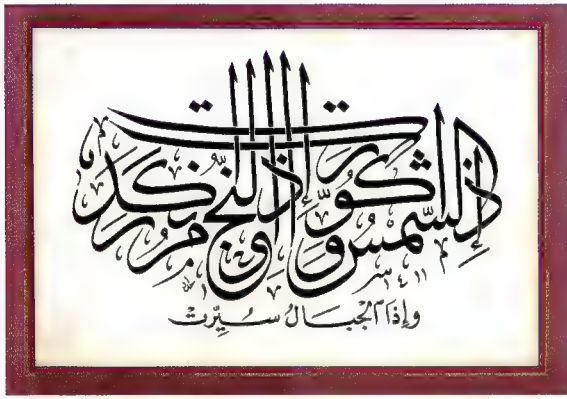 إذا الشمس كورت وإذا النجوم انكدرت
١٤١١
وإذا الجبال سيرت